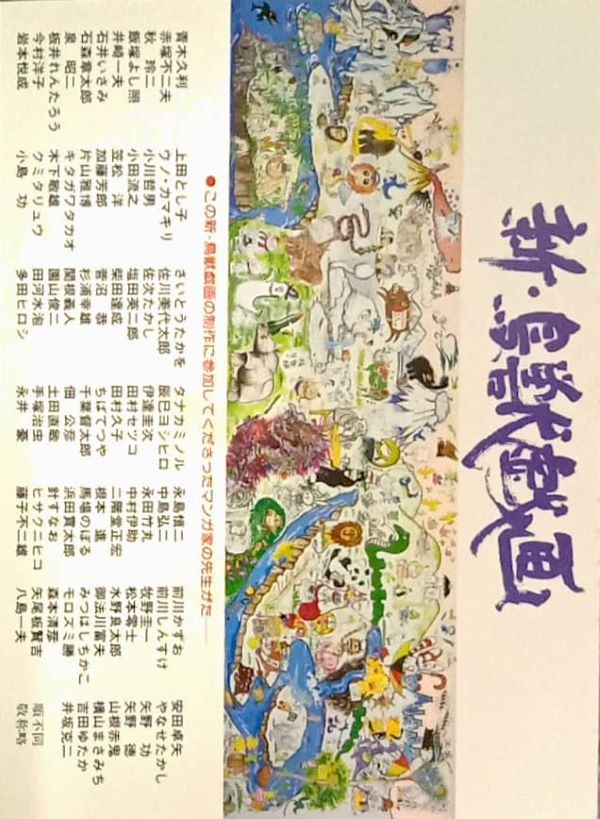 新・鳥獣戯画
●この新・鳥獣戯画の制作に参加してくださったマンガ家の先生がた——
青木久利
赤塚不二夫
秋 玲二
飯塚よし照
井崎一夫
石井いさみ
石森章太郎
泉 昭二
板井れんたろう
今村洋子
岩本悦成
上田とし子
ウノ・カマキリ
小川哲男
小田流之
笠松 洋
加藤芳郎
片山雅博
キタガワタカオ
木下敏雄
クミタリュウ
小島 功
さいとうたかを
佐川美代太郎
佐次たかし
塩田英二郎
柴田達成
菅沼 恭
杉浦幸雄
関根義人
園山俊二
田河水泡
多田ヒロシ
タナカミノル
辰巳ヨシヒロ
伊達圭次
田村セツコ
田村久子
ちばてつや
千葉督太郎
佃 公彦
土田直敏
手塚治虫
永井 豪
永島慎二
中島弘二
永田竹丸
中村伊助
二階堂正宏
根本 進
馬場のぼる
浜田貫太郎
針すなお
ヒサクニヒコ
藤子不二雄
前川かずお
前川しんすけ
牧野圭一
松本零士
水野良太郎
御法川富夫
みつはしちかこ
モロズミ勝
森本清彦
矢尾板賢吉
八島一夫
安田卓矢
やなせたかし
矢野 功
矢野 徳
山根赤鬼
横山まさみち
吉田ゆたか
井坂克二
順不同
敬称略